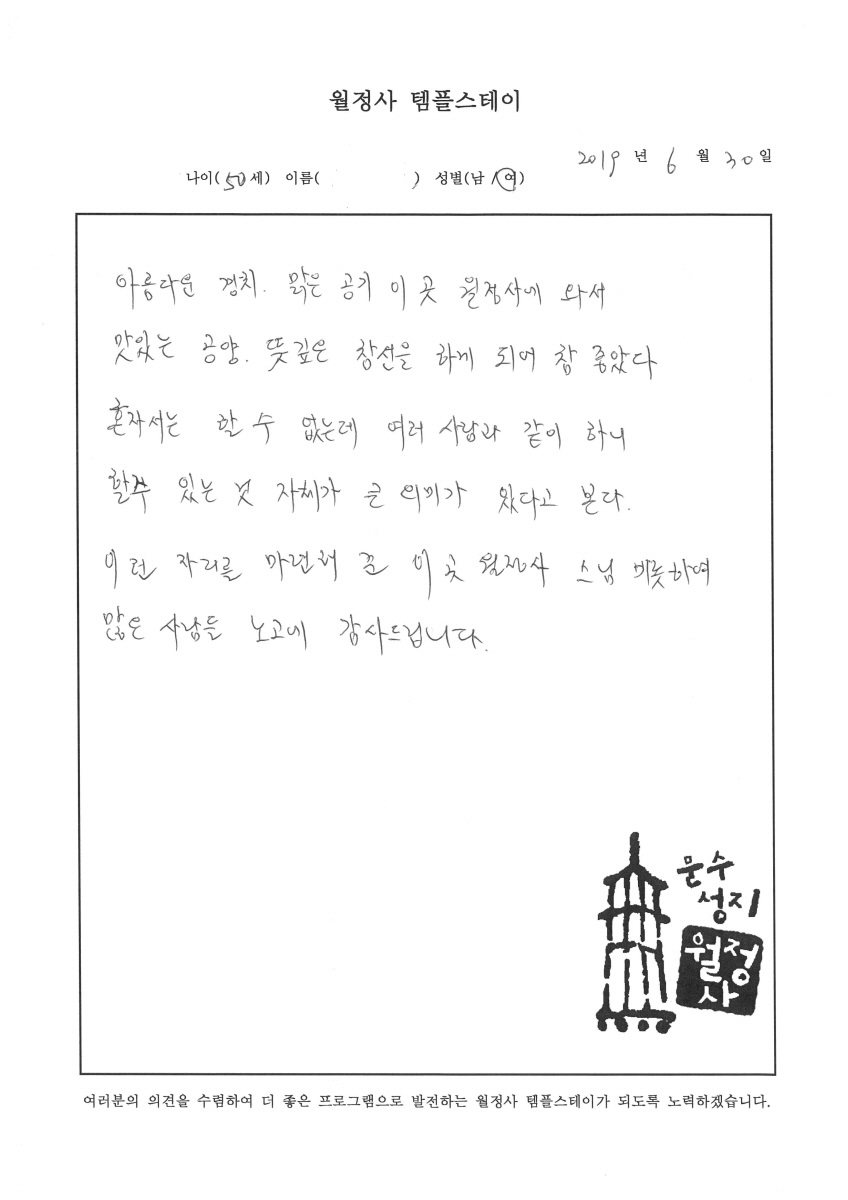 월정사 템플스테이
2019 년 6 월 30 일
나이( 50 세) 이름( ) 성별(남 / 여)
아름다운 경치. 맑은 공기 이 곳 월정사에 와서
맛있는 공양. 뜻깊은 참선을 하게 되어 참 좋았다
혼자서는 할 수 없는데 여러 사람과 같이 하니
할 수 있는 것 자체가 큰 의미가 있다고 본다.
이런 자리를 마련해 준 이 곳 월정사 스님 비롯하여
많은 사람들 노고에 감사드립니다.
문수
성지
월정
사
여러분의 의견을 수렴하여 더 좋은 프로그램으로 발전하는 월정사 템플스테이가 되도록 노력하겠습니다.